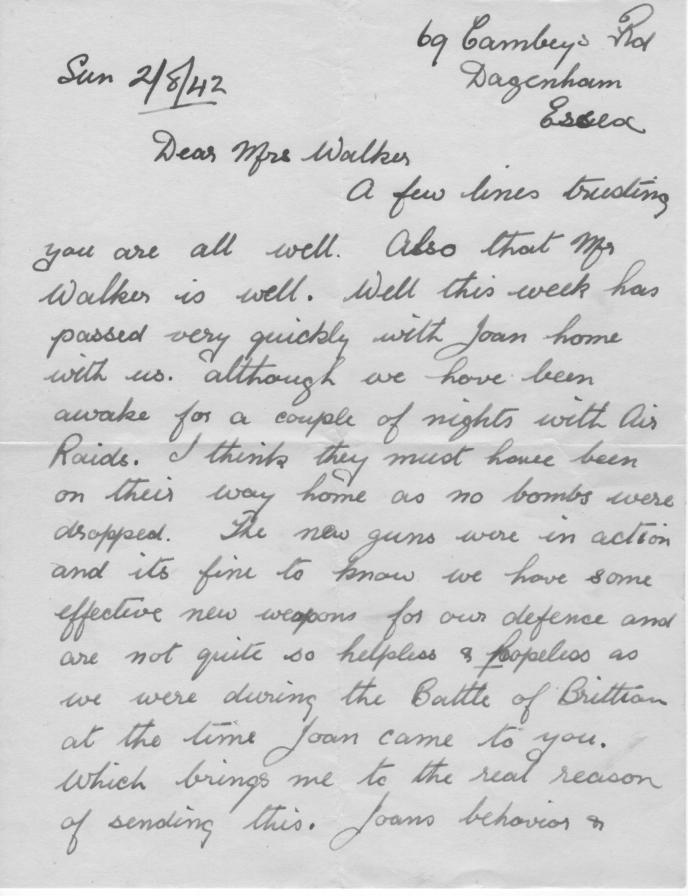 69 Cambeys Rd
Sun 2/8/42
Dagenham
Essex
Dear Mrs Walker
A few lines trusting
you are all well. Also that Mr
Walker is well. Well this week has
passed very quickly with Joan home
with us. although we have been
awake for a couple of nights with Air
Raids. I think they must have been
on their way home as no bombs were
dropped. The new guns were in action
and its fine to know we have some
effective new weapons for our defence and
are not quite so helpless & hopeless as
we were during the Battle of Brittian
at the time Joan came to you.
Which brings me to the real reason
of sending this. Joans behavior &